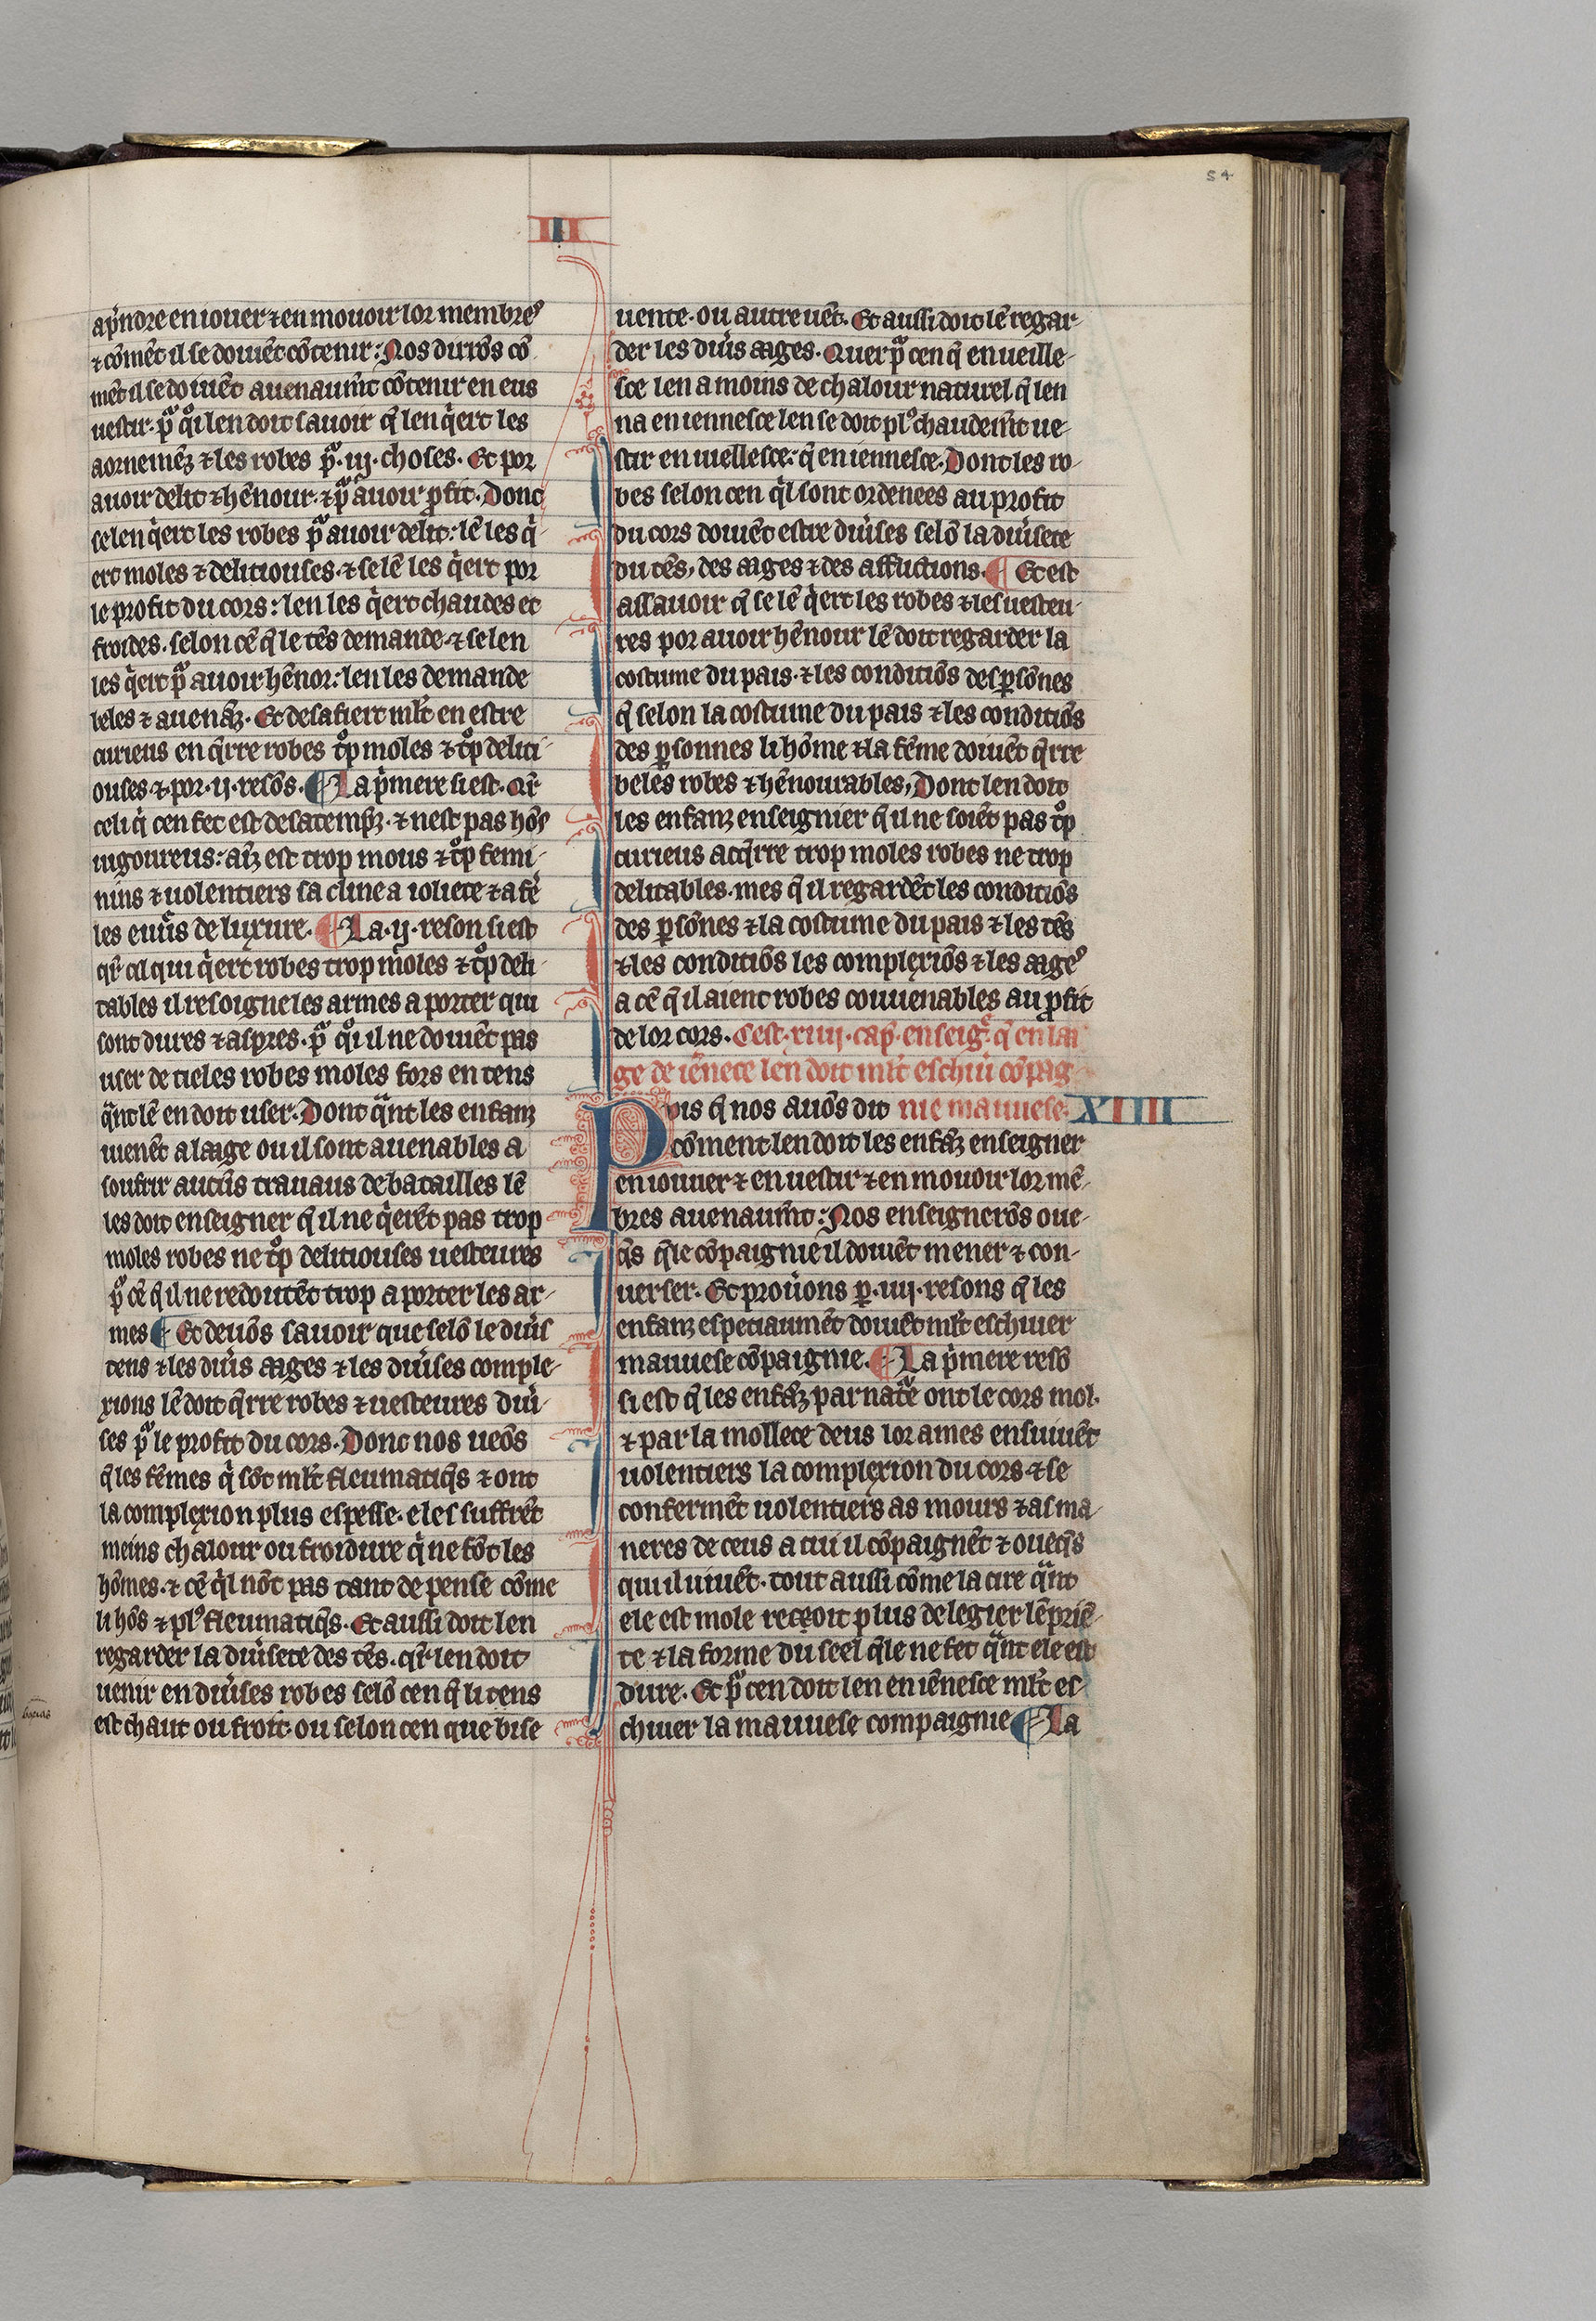 54
III
ap̃ndre en iouer ⁊ en mouoir lor membres
⁊ cõmẽt il se doiuẽt cõtenir: Nos dirõs cõ
mẽt il se doiuẽt auenaum̃t cõtenir en eus
uestir. pͣ qͦi len doit sauoir q̃ len q̃ert les
aornemẽz ⁊ les robes pͣ .iij. choses. Et por
auoir delit ⁊ hẽnour. ⁊ pͣ auoir ꝓfit. Donc
se len q̃ert les robes pͣ auoir delit: lẽ les q̃
ert moles ⁊ delitiouses. ⁊ se lẽ les q̃ert por
le profit du cors: len les q̃ert chaudes et
froides. selon cẽ q̃ le tẽs demande. ⁊ se len
les q̃ert pͣ auoir hẽnor: len les demande
beles ⁊ auenãz. Et desafiert ml̃t en estre
curieus en q̃rre robes tͦp moles ⁊ tͦp deliti-
ouses ⁊ por .ij. resõs. ¶ La p̃mere si est. Qr̃
celi q̃ cen fet est desatemp̃z. ⁊ nest pas hõs
uigoureus: aĩz est trop mous ⁊ tͦp femi-
nins ⁊ uolentiers sa cline a ioliete ⁊ a fẽ
les euũs de luxure. ¶ La .ij. reson si est
qr̃ cil qui q̃ert robes trop moles ⁊ tͦp deli-
tables il resoigne les armes a porter qui
sont dures ⁊ aspres. pͣ qͦi il ne doiuẽt pas
user de tieles robes moles fors en tens
qͣnt lẽ en doit user. Dont qͣnt les enfanz
uienẽt a laage ou il sont auenables a
soufrir aucũs trauaus de batailles lẽ
les doit enseigner q̃ il ne q̃erẽt pas trop
moles robes ne tͦp delitiouses uesteures
pͦ cẽ q̃ il ne redoutẽt trop a porter les ar-
mes ¶ Et deuõs sauoir que selõ le diũs
tens ⁊ les diũs aages ⁊ les diũses comple-
xions lẽ doit q̃rre robes ⁊ uesteures diũ-
ses pͣ le profit du cors. Donc nos ueõs
q̃ les fẽmes q̃ sõt ml̃t fleumatiq̃s ⁊ ont
la complexion plus espesse. eles suffrẽt
meins chalour ou froidure q̃ ne fõt les
hõmes. ⁊ cẽ q̃l nõt pas tant de pense cõme
li hõs ⁊ pl⁹ fleumatiq̃s. Et aussi doit len
regarder la diũsete des tẽs. qr̃ len doit
uenir en diũses robes selõ cen q̃ li tens
est chaut ou froit. ou selon cen que bise
uente. ou autre uẽt. Et aussi doit lẽ regar-
der les diũs aages. Quer pͣ cen q̃ en ueille-
sce len a moins de chalour naturel q̃ len
na en iennesce len se doit pl⁹ chaudem̃t ue-
stir en uiellesce: q̃ en iennesce. Dont les ro-
bes selon cen q̃l sont ordenees au profit
du cors doiuẽt estre diũses selõ la diũsete
du tẽs, des aages ⁊ des affuctions. ¶ Et est
assauoir q̃ se lẽ q̃ert les robes ⁊ les uesteu-
res por auoir hẽnour lẽ doit regarder la
costume du pais. ⁊ les conditiõs des ꝑsõnes
q̃ selon la costume du pais ⁊ les conditiõs
des ꝑsonnes li hõme ⁊ la fẽme doiuẽt q̃rre
beles robes ⁊ hẽnourables, Dont len doit
les enfanz enseignier q̃ il ne soiẽt pas tͦp
curieus a cq̃rre trop moles robes ne trop
delitables. mes q̃ il regardẽt les conditiõs
des ꝑsõnes ⁊ la costume du pais ⁊ les tẽs
⁊ les conditiõs les complexiõs ⁊ les aages
a cẽ q̃ il aient robes couuenables au ꝓfit
de lor cors. Cest .xiiij. cap̃. enseig̃. q̃ en laa
ge de iẽnece len doit ml̃t eschiũ cõpag
Puis q̃ nos auõs dit nie mauuese. XIIII
cõment len doit les enfãz enseigner
en iouuer ⁊ en uestir ⁊ en mouoir lor mẽ-
bres auenaum̃t: Nos enseignerõs oue-
q̃s q̃le cõpaignie il doiuẽt mener ⁊ con-
uerser. Et prouũons ꝑ .iiij. resons q̃ les
enfanz espetiaumẽt doiuẽt ml̃t eschiuer
mauuese cõpaignie. ¶ La p̃mere resõ
si est q̃ les enfãz par natͥe ont le cors mol.
⁊ par la mollece deus lor ames ensuiuẽt
uolentiers la complexion du cors ⁊ se
confermẽt uolentiers as mours ⁊ as ma-
neres de ceus a cui il cõpaignẽt ⁊ oueq̃s
qui il uiuẽt. tout aussi cõme la cire qͣnt
ele est mole reçoit plus de legier lẽpriẽ-
te ⁊ la forme du seel q̃le ne fet qͣnt ele est
dure. Et pͦ cen doit len en iẽnesce ml̃t es-
chiuer la mauuese compaignie ¶ La